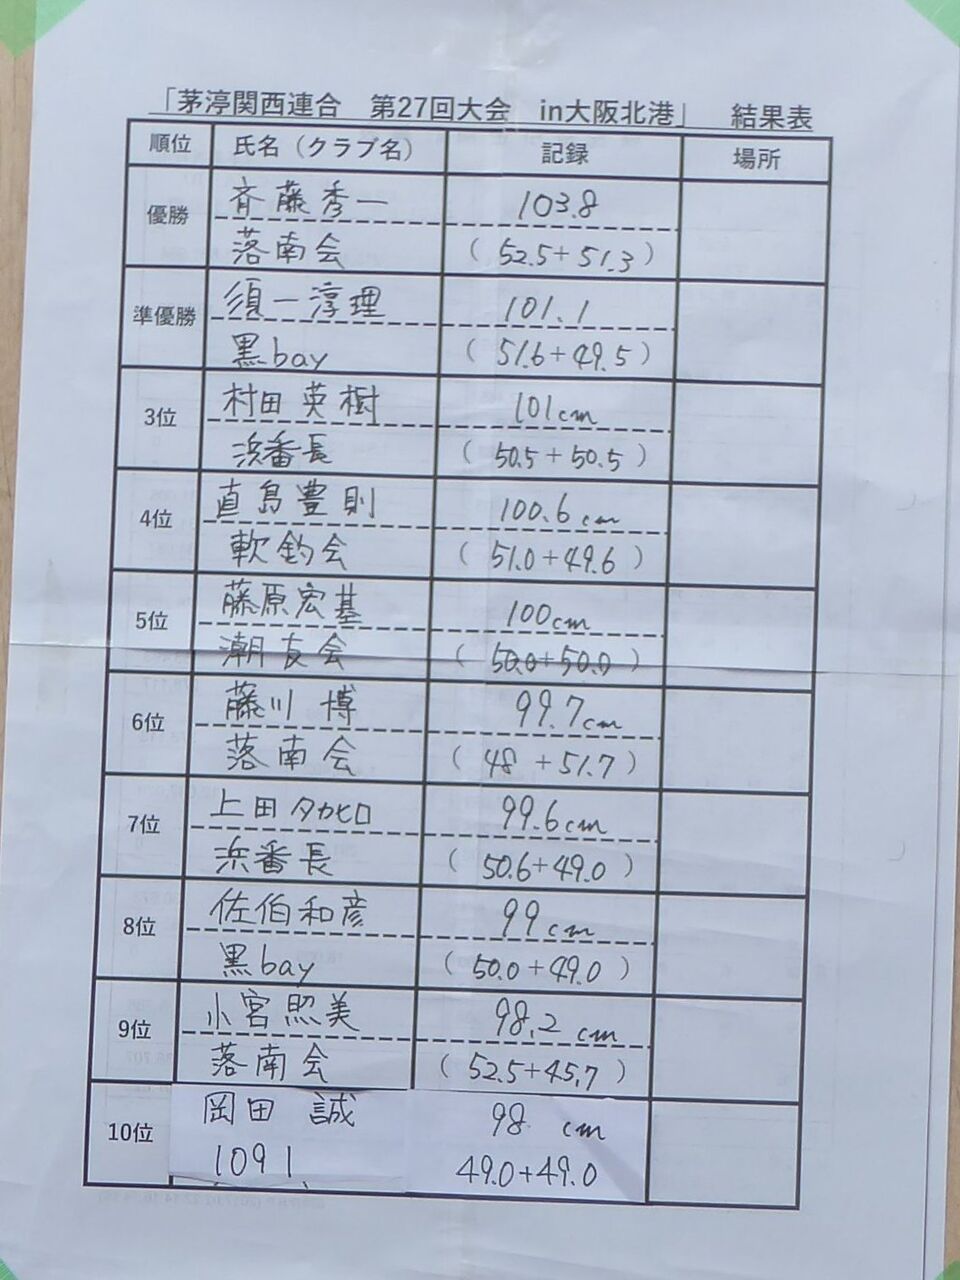 「茅渟関西連合　第27回大会　in大阪北港」　結果表
順位 氏名（クラブ名） 記録 場所
優勝 斉藤秀一 103.8
落南会 (52.5+51.3)
準優勝 須一淳理 101.1
黒bay (51.6+49.5)
3位 村田英樹 101cm
浜番長 (50.5+50.5)
4位 直島豊則 100.6cm
軟釣会 (51.0+49.6)
5位 藤原宏基 100cm
潮友会 (50.0+50.0)
6位 藤川博 99.7cm
落南会 (48+51.7)
7位 上田タカヒロ 99.6cm
浜番長 (50.6+49.0)
8位 佐伯和彦 99cm
黒bay (50.0+49.0)
9位 小宮照美 98.2cm
落南会 (52.5+45.7)
10位 岡田 誠 98 cm
1091 49.0+49.0